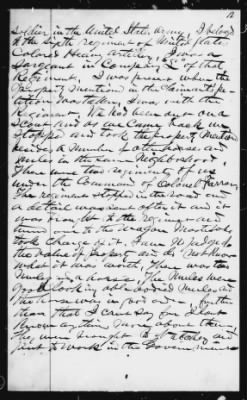 12
Soldier in the United States Army, I belong
to the Sixth Regiment of United States
Colored Heavy Artillery
Sergeant in Company of that
Regiment, I was present when the
property mentioned in the Claimants pe-
tition was taken I was with the
Regiment. We had been out on a
Scout and as we came back we
stopped and took the property mentioned
besides a number of other horses and
mules in the same Neighborhood.
There were two regiments of us
under the Command of Colonel Farrar
The regiment stopped in the road and
a detail was sent after it and it
was brought to the regiment and
turned over to the Wagon Master who
took charge of it. I am no judge of
the value of property and do not know
what it was worth. There was two
mules and a horse. The mules were
good looking able bodied mules and
the horse was in good order, further
than that I can't say for I dont
know any thing more about them
They were brought to Natchez and
put to work in the Government